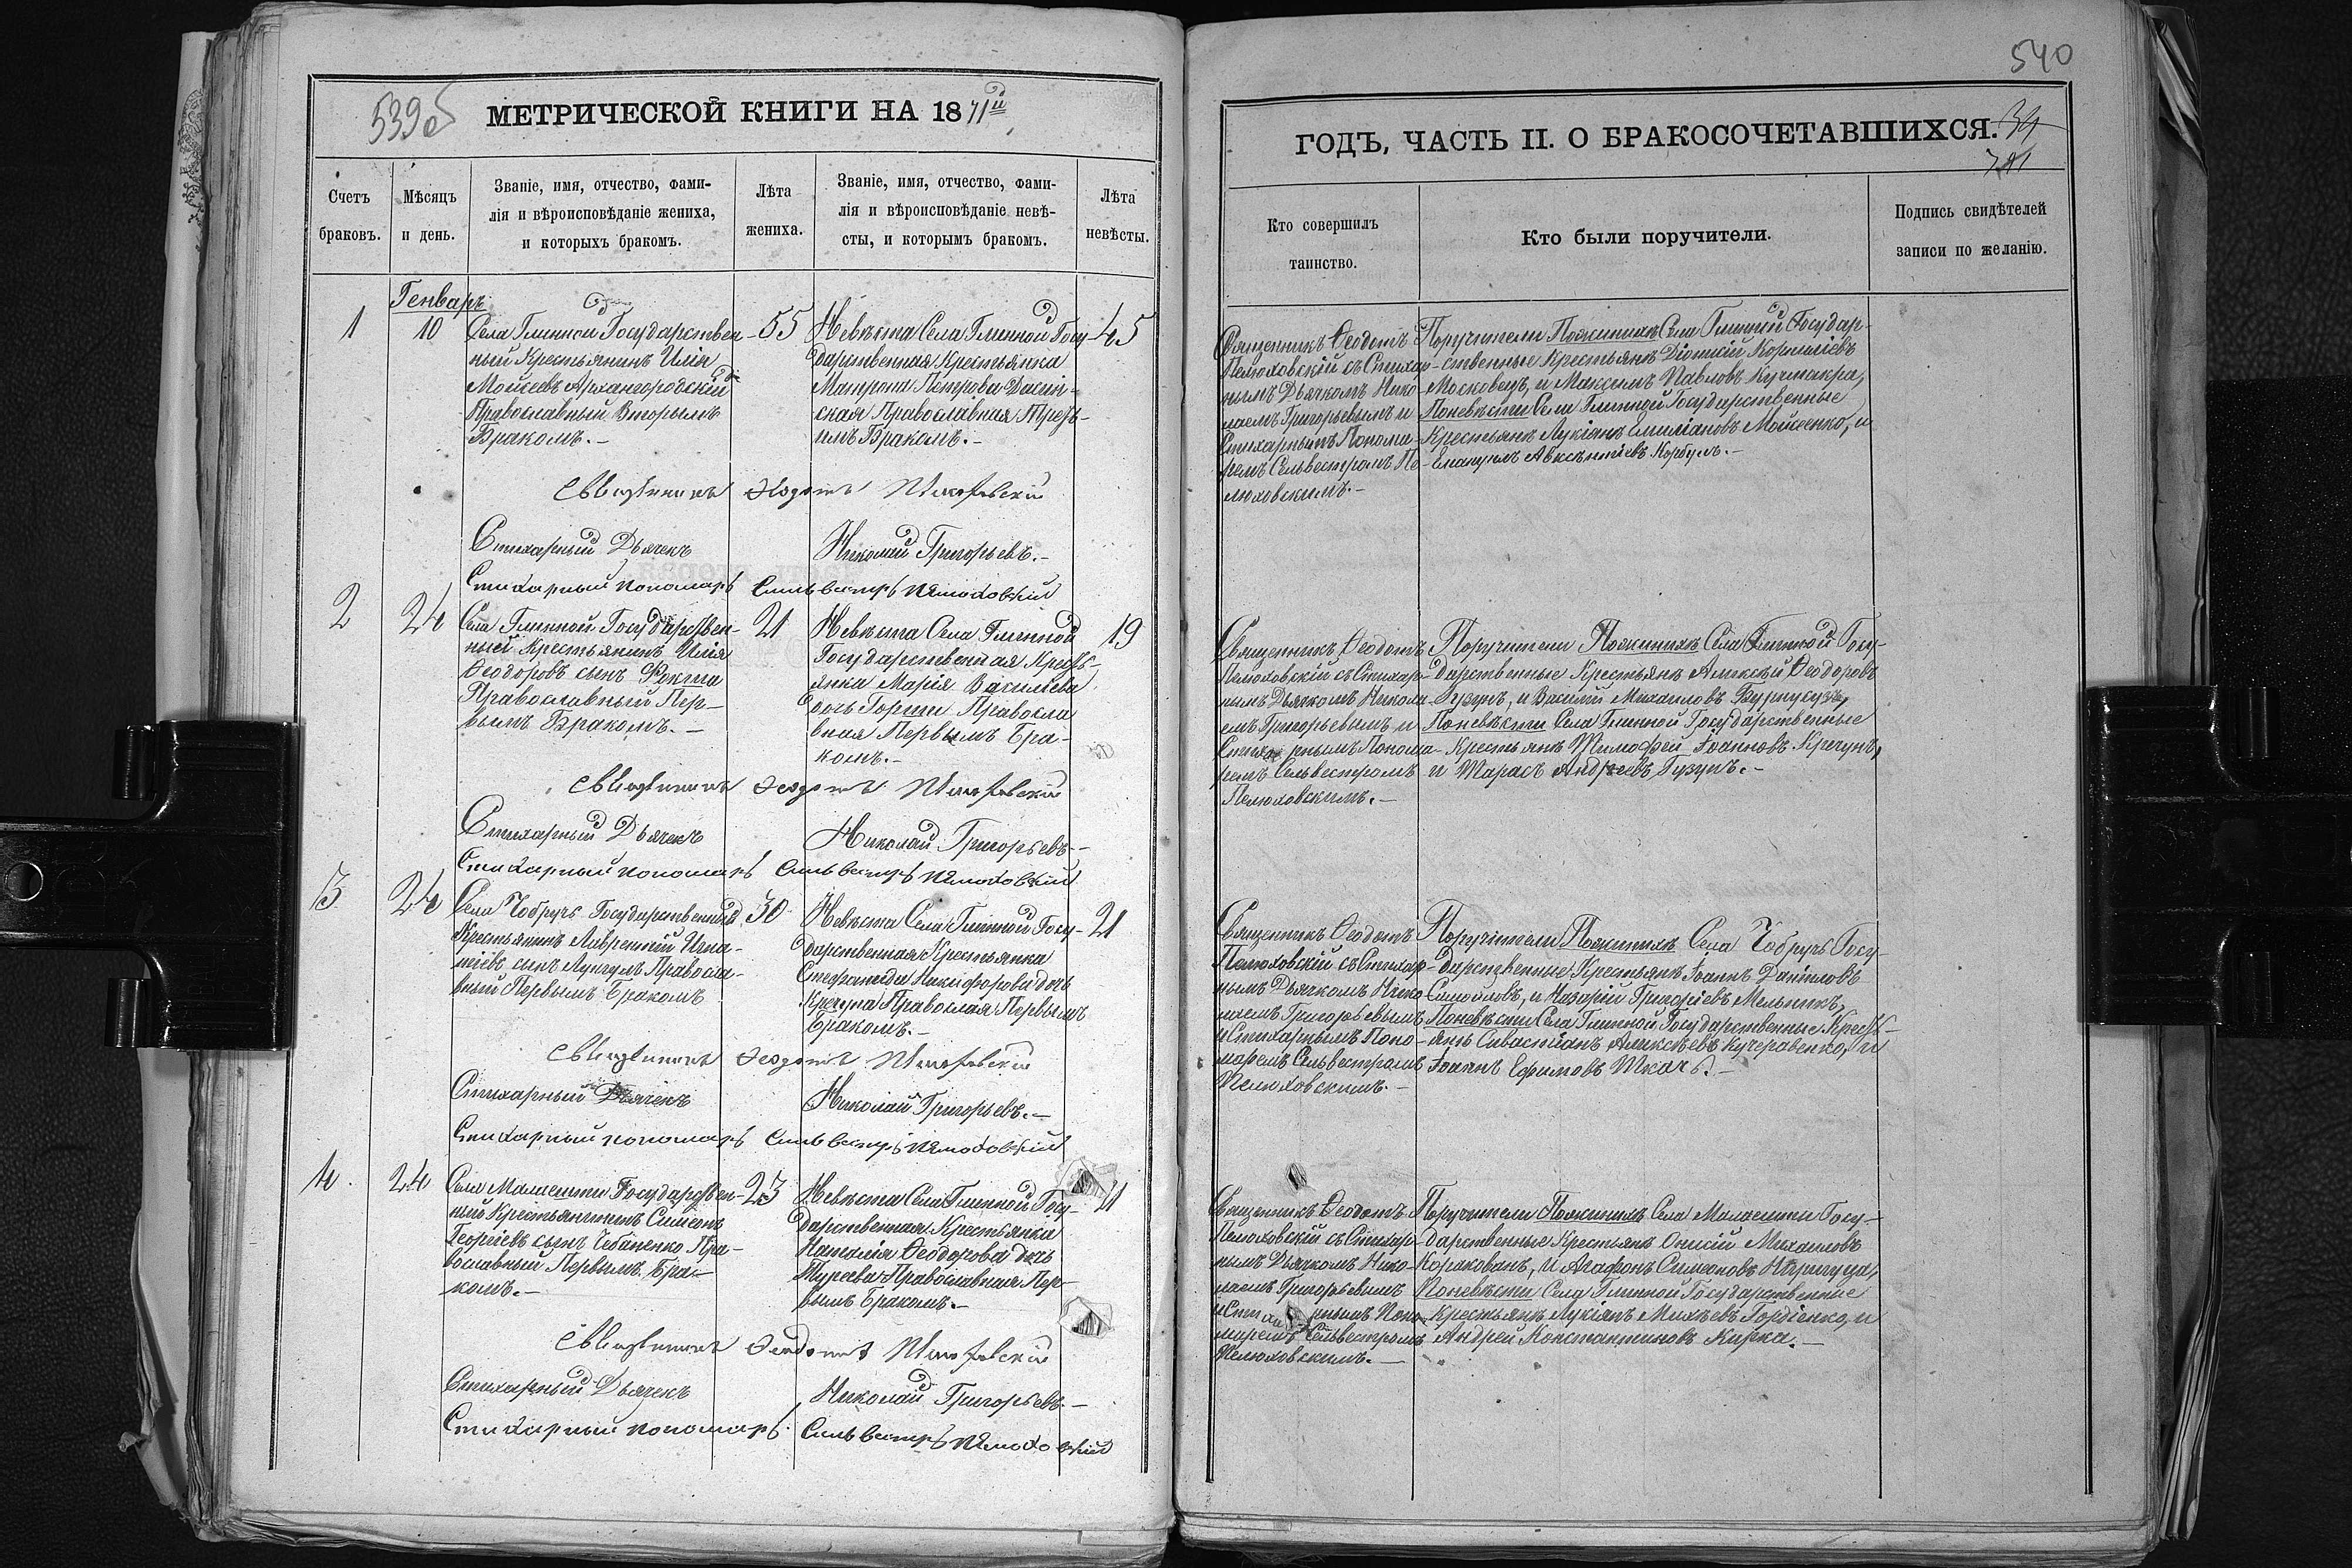 539 об
МЕТРИЧЕСКОЙ КНИГИ НА 1871й
Счетъ браковъ.
Мѣсяцъ и день.
Званіе, имя, отчество, фами-
лія и вѣроисповѣданіе жениха,
и которыхъ бракомъ.
Лѣта жениха.
Званіе, имя, отчество, фами-
лія и вѣроисповѣданіе невѣ-
сты, и которымъ бракомъ.
Лѣта невѣсты.
Генварь
1
10
Села Глинной Государствен-
ный Крестьянинъ Илія
Мойсеевъ Архангородскій
Православный Вторымъ
Бракомъ.-
55
Невѣста Села Глинной Госу-
дарственная Крестьянка
Матрона Петрова
ская Православная Треть-
имъ Бракомъ.-
45
Священникъ Ѳеодотъ Пелюховскій
Стихарный Дьячекъ Николай Григорьевъ.-
Стихарный пономарь Сильвестръ Пелюховскій
2
24
Села Глинной Государствен-
ный Крестьянинъ Илія
Ѳеодоровъ сынъ
Православный Пер-
вымъ Бракомъ.-
21
Невѣста Села Глинной
Государственная Кресть-
янка Марія Василіева
дочь Православ-
вная Первымъ Бра-
комъ.-
19
Священникъ Ѳеодотъ Пелюховскій
Стихарный Дьячекъ Николай Григорьевъ.-
Стихарный пономарь Сильвестръ Пелюховскій
3
24
Села Чобручь Государственный
Крестьянинъ Лаврентій Игна-
тіевъ сынъ Лунгулъ Правосла-
вный Первымъ Бракомъ
30
Невѣста Села Глинной Госу-
дарственная Крестьянка
Стефанида Никифорова дочь
Кречуна Православная Первымъ
Бракомъ.-
21
Священникъ Ѳеодотъ Пелюховскій
Стихарный Дьячекъ Николай Григорьевъ.-
Стихарный пономарь Сильвестръ Пелюховскій
4.
24
Села Малаешти Государствен-
ный Крестьянинъ Симеонъ
Георгіевъ сынъ Чебаненко Пра-
вославный Первымъ Бра-
комъ.-
23
Невѣста Села Глинной Госу-
дарственная Крестьянка
Наталія Ѳеодорова дочь
Православная Пер-
вымъ Бракомъ.-
21
Священникъ Ѳеодотъ Пелюховскій
Стихарный Дьячекъ Николай Григорьевъ.-
Стихарный пономарь Сильвестръ Пелюховскій
540
ГОДЪ, ЧАСТЬ II. О БРАКОСОЧЕТАВШИХСЯ.
39
Кто совершилъ таинство.
Кто были поручители.
Подпись свидѣтелей
записи по желанію.
Священникъ Ѳеодотъ
Пелюховскій съ Стихар-
нымъ Дьячкомъ Нико-
лаемъ Григорьевымъ и
Стихарнымъ Понома-
ремъ Сельвестромъ Пе-
люховскимъ.-
Поручители Поженихѣ Села Глинной Государ-
ственные Крестьянѣ Діонисій Корниліевъ
Московецъ, и Максимъ Павловъ Кучмакра,
Поневѣсти Села Глинной Государственные
Крестьянѣ Лукіанъ Емиліановъ Мойсеенко, и
Емануилъ Авксѣнтіевъ Корбулъ.-
Священникъ Ѳеодотъ
Пелюховскій съ Стихар-
нымъ Дьячкомъ Никола-
емъ Григорьевымъ и
Стихарнымъ Понома-
ремъ Сельвестромъ
Пелюховскимъ.-
Поручители Поженихѣ Села Глинной Госу-
дарственные Крестьянѣ Алексѣй Ѳеодоровъ
Гузунъ, и Василій Михаиловъ
Поневѣсти Села Глинной Государственные
Крестьянѣ Тимофей Іоанновъ Кречунъ,
и Тарасъ Андреевъ Гузунъ.-
Священникъ Ѳеодотъ
Пелюховскій съ Стихар-
нымъ Дьячкомъ Нико-
лаемъ Григорьевымъ
и Стихарнымъ Поно-
маремъ Сельвестромъ
Пелюховскимъ.-
Поручители Поженихѣ Села Чобручь Госу-
дарственные Крестьянѣ Іоаннъ Даніиловъ
Самойловъ, и Назарій Григоріевъ Мельникъ,
Поневѣсти Села Глинной Государственные Кресть-
янѣ Сивастіанъ Алексѣевъ Кучеравенко, и
Іоаннъ Ефимовъ Ткачь.-
Священникъ Ѳеодотъ
Пелюховскій съ Стихар-
нымъ Дьячкомъ Нико-
лаемъ Григорьевымъ
и Стихарнымъ Поно-
маремъ Сельвестромъ
Пелюховскимъ.-
Поручители Поженихѣ Села Малаешти Госу-
дарственные Крестьянѣ Онисій Михаиловъ
Коракованъ, и Агафонъ Симеоновъ
Поневѣсти Села Глинной Государственные
Крестьянѣ Лукіянъ Михѣевъ Гордіенко, и
Андрей Константиновъ Кирка.-